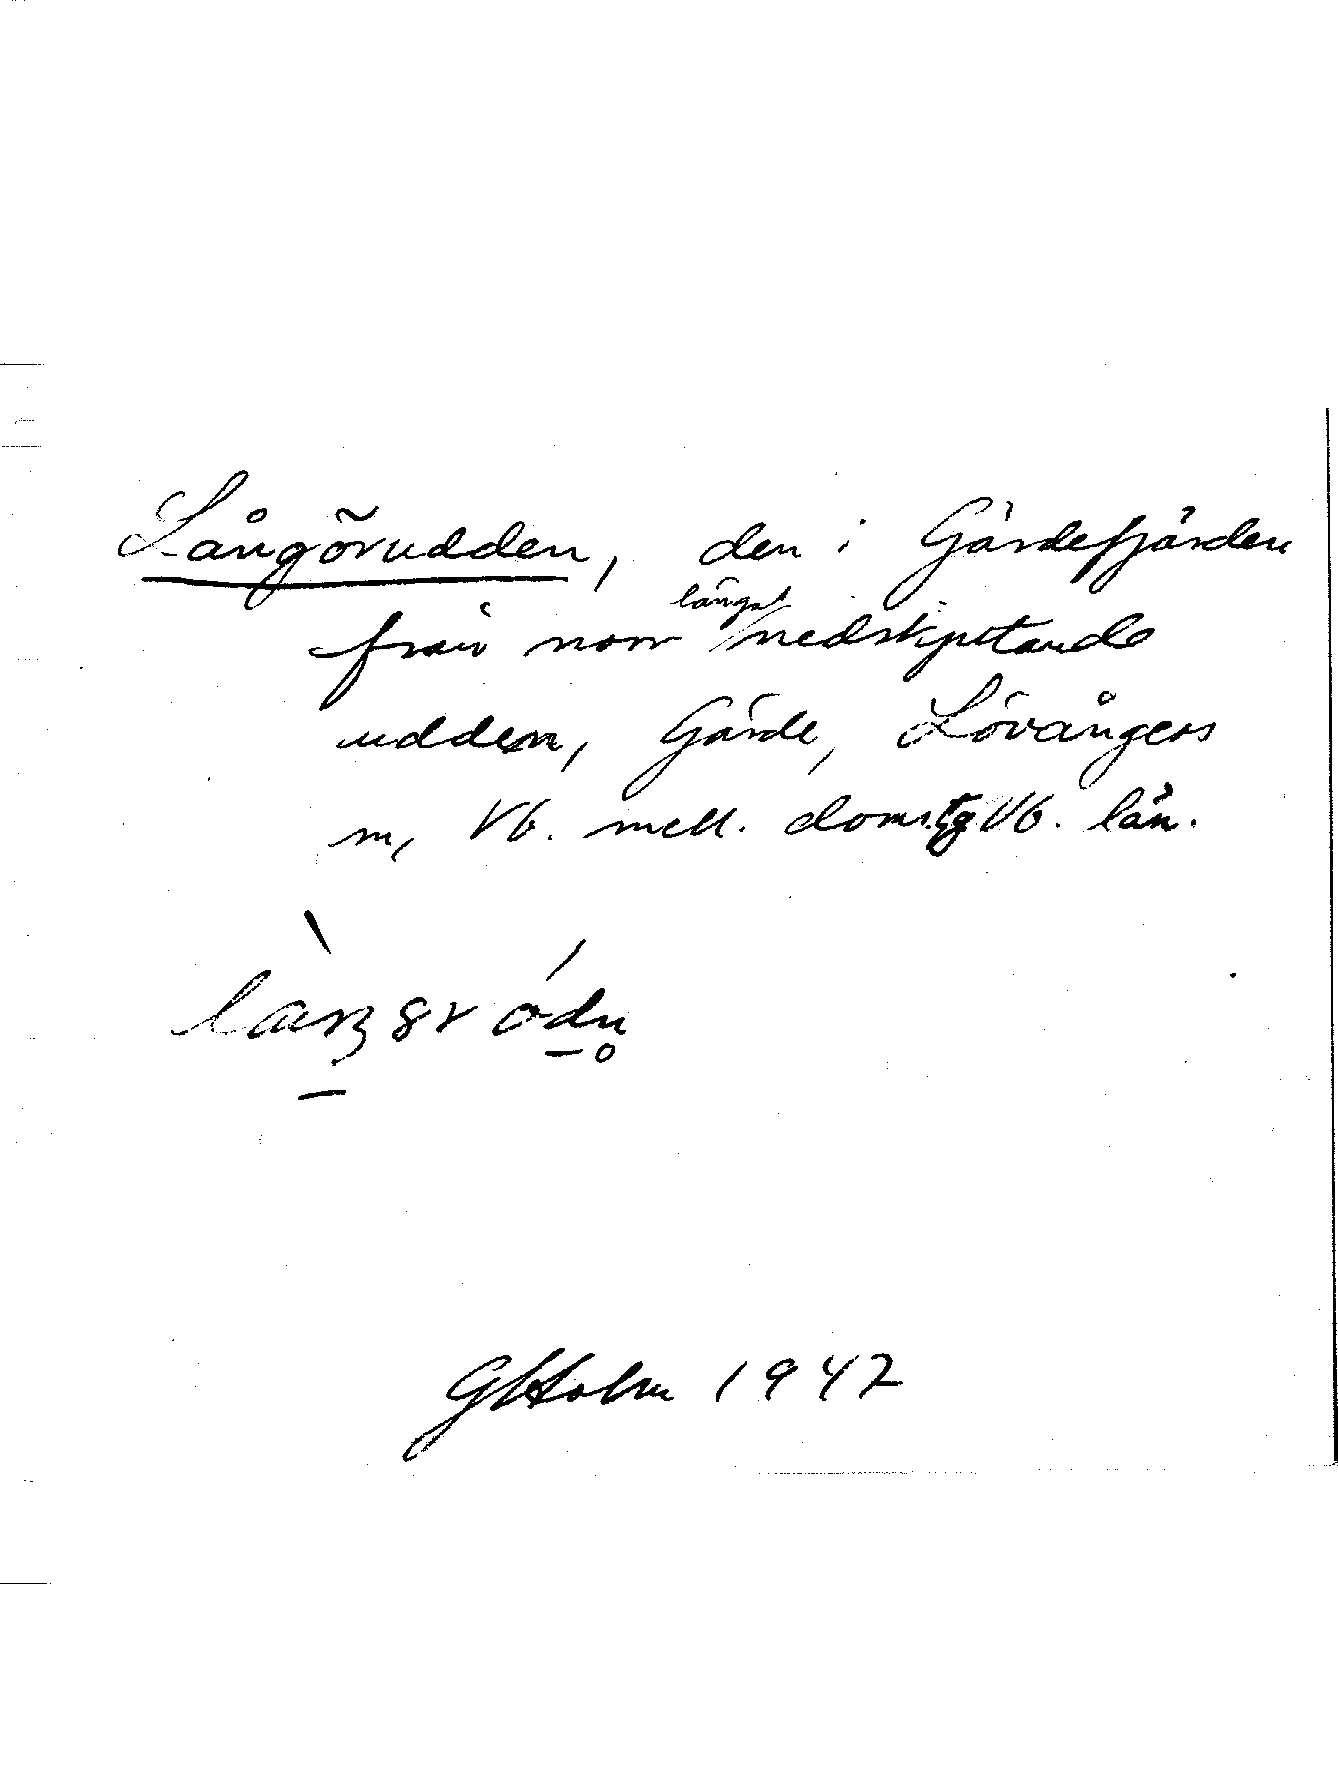 Långörudden, den i Gärdefjärden
från norr längst nedskjutande
udden, Gärde, Lövångers
sn, Vb. mell. doms.tg Vb. län.
GHolm 1947